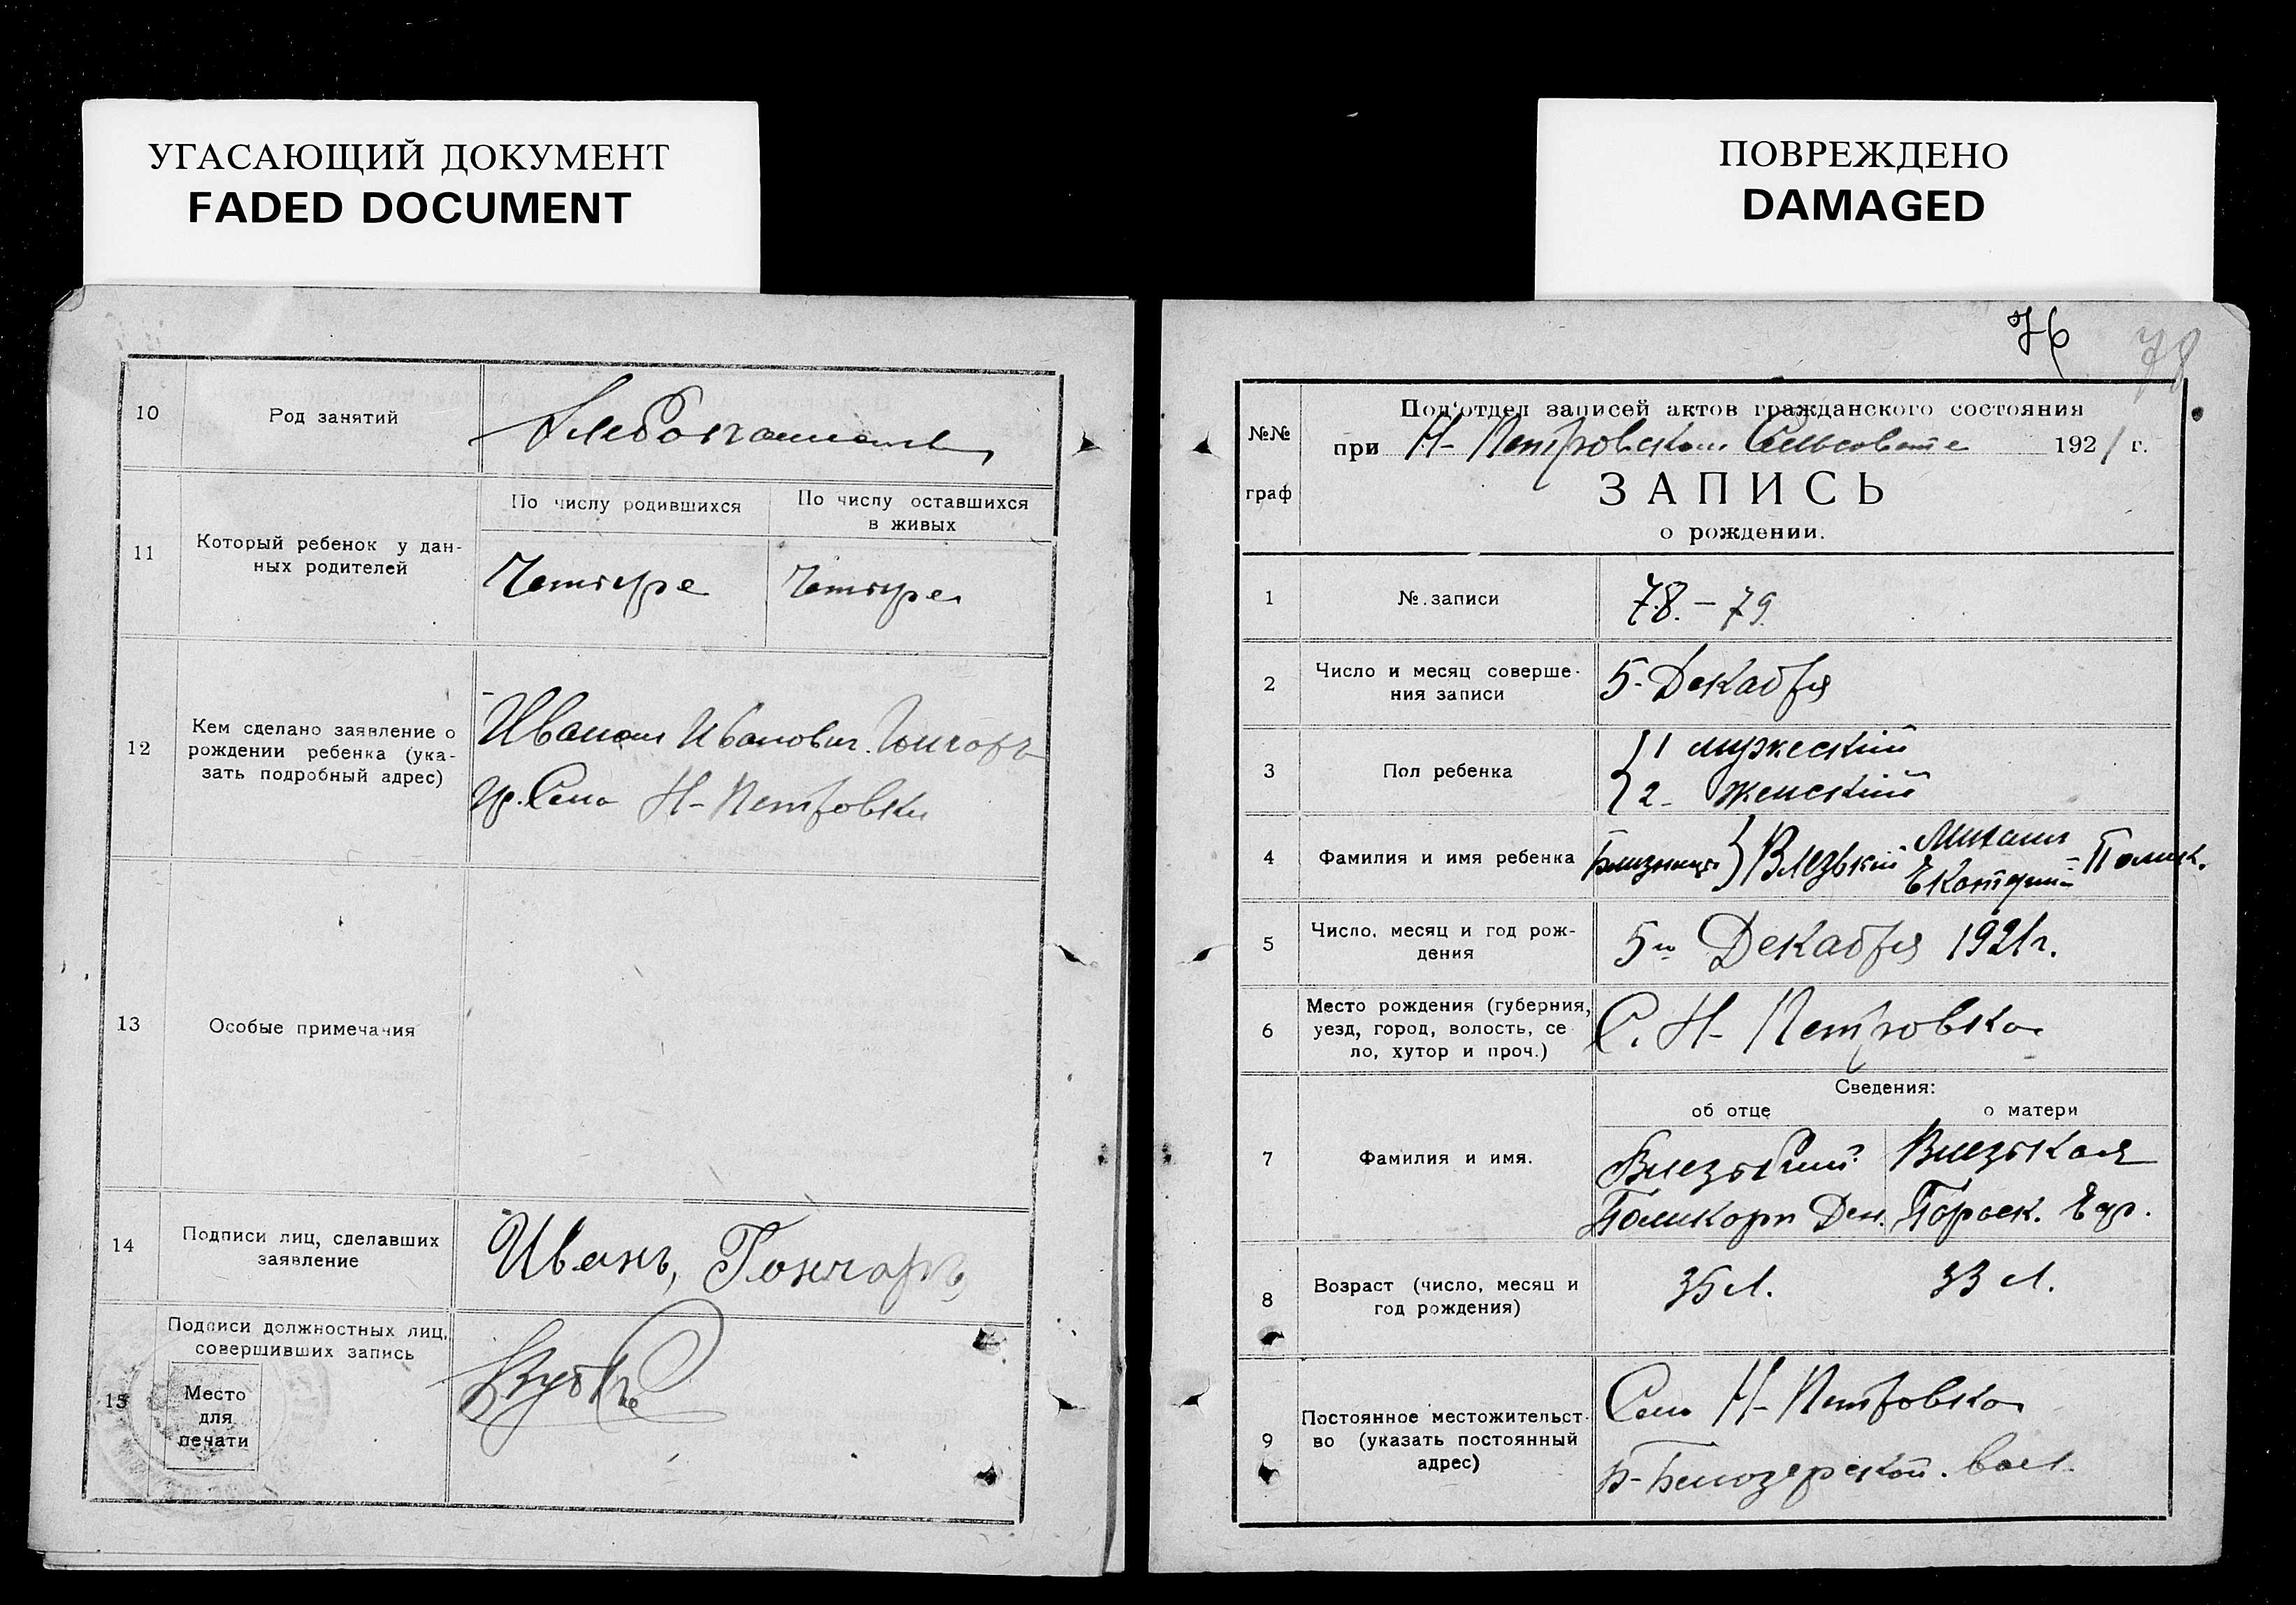 УГАСАЮЩИЙ ДОКУМЕНТ
FADED DOCUMENT
10
Род занятий
Хлебопашець
11
Который ребенок у дан-
ных родителей
По числу родившихся
По числу оставшихся
в живых
Четыре
Четыре
12
Кем сделано заявление о
рождении ребенка (ука-
зать подробный адрес)
Иваном Иванович. Гончаръ
гр. Села Н-Петровки
13
Особые примечания
14
Подписи лиц, сделавших
заявление
Иванъ, Гончаръ
15
Подписи должностных лиц,
совершивших запись
Место
для
печати
ПОВРЕЖДЕНО
DAMAGED
76
78
№№
граф
Под'отдел записей актов гражданского состояния
при Н-Петровском Сельсовете 1921 г.
ЗАПИСЬ
о рождении.
1
№ записи
78.-79.
2
Число и месяц соверше-
ния записи
5-Декабря
3
Пол ребенка
1 мужеский
2- женский
4
Фамилия и имя ребенка
Близнецы } Влезький Михаил
Екатерин - Полик.
5
Число, месяц и год рож-
дения
5го Декабря 1921г.
6
Место рождения (губерния,
уезд, город, волость, се
ло, хутор и проч.)
С. Н-Петровка
Сведения:
об отце
о матери
7
Фамилия и имя.
Влезький
Поликарп Дем.
Влезькая
Параск. Едр.
8
Возраст (число, месяц и
год рождения)
35 л.
33 л.
9
Постоянное местожительст-
во (указать постоянный
адрес)
Село Н-Петровка
Б-Белозерской. вол.